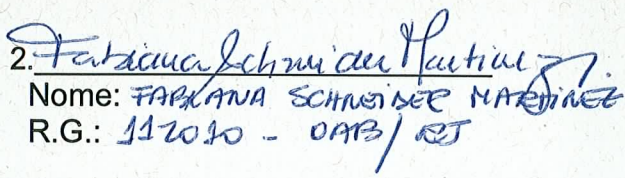 2. Fabiana Schneider Martinez
Nome: FABIANA SCHNEIDER MARTINEZ
R.G.: 112010 - OAB/RJ